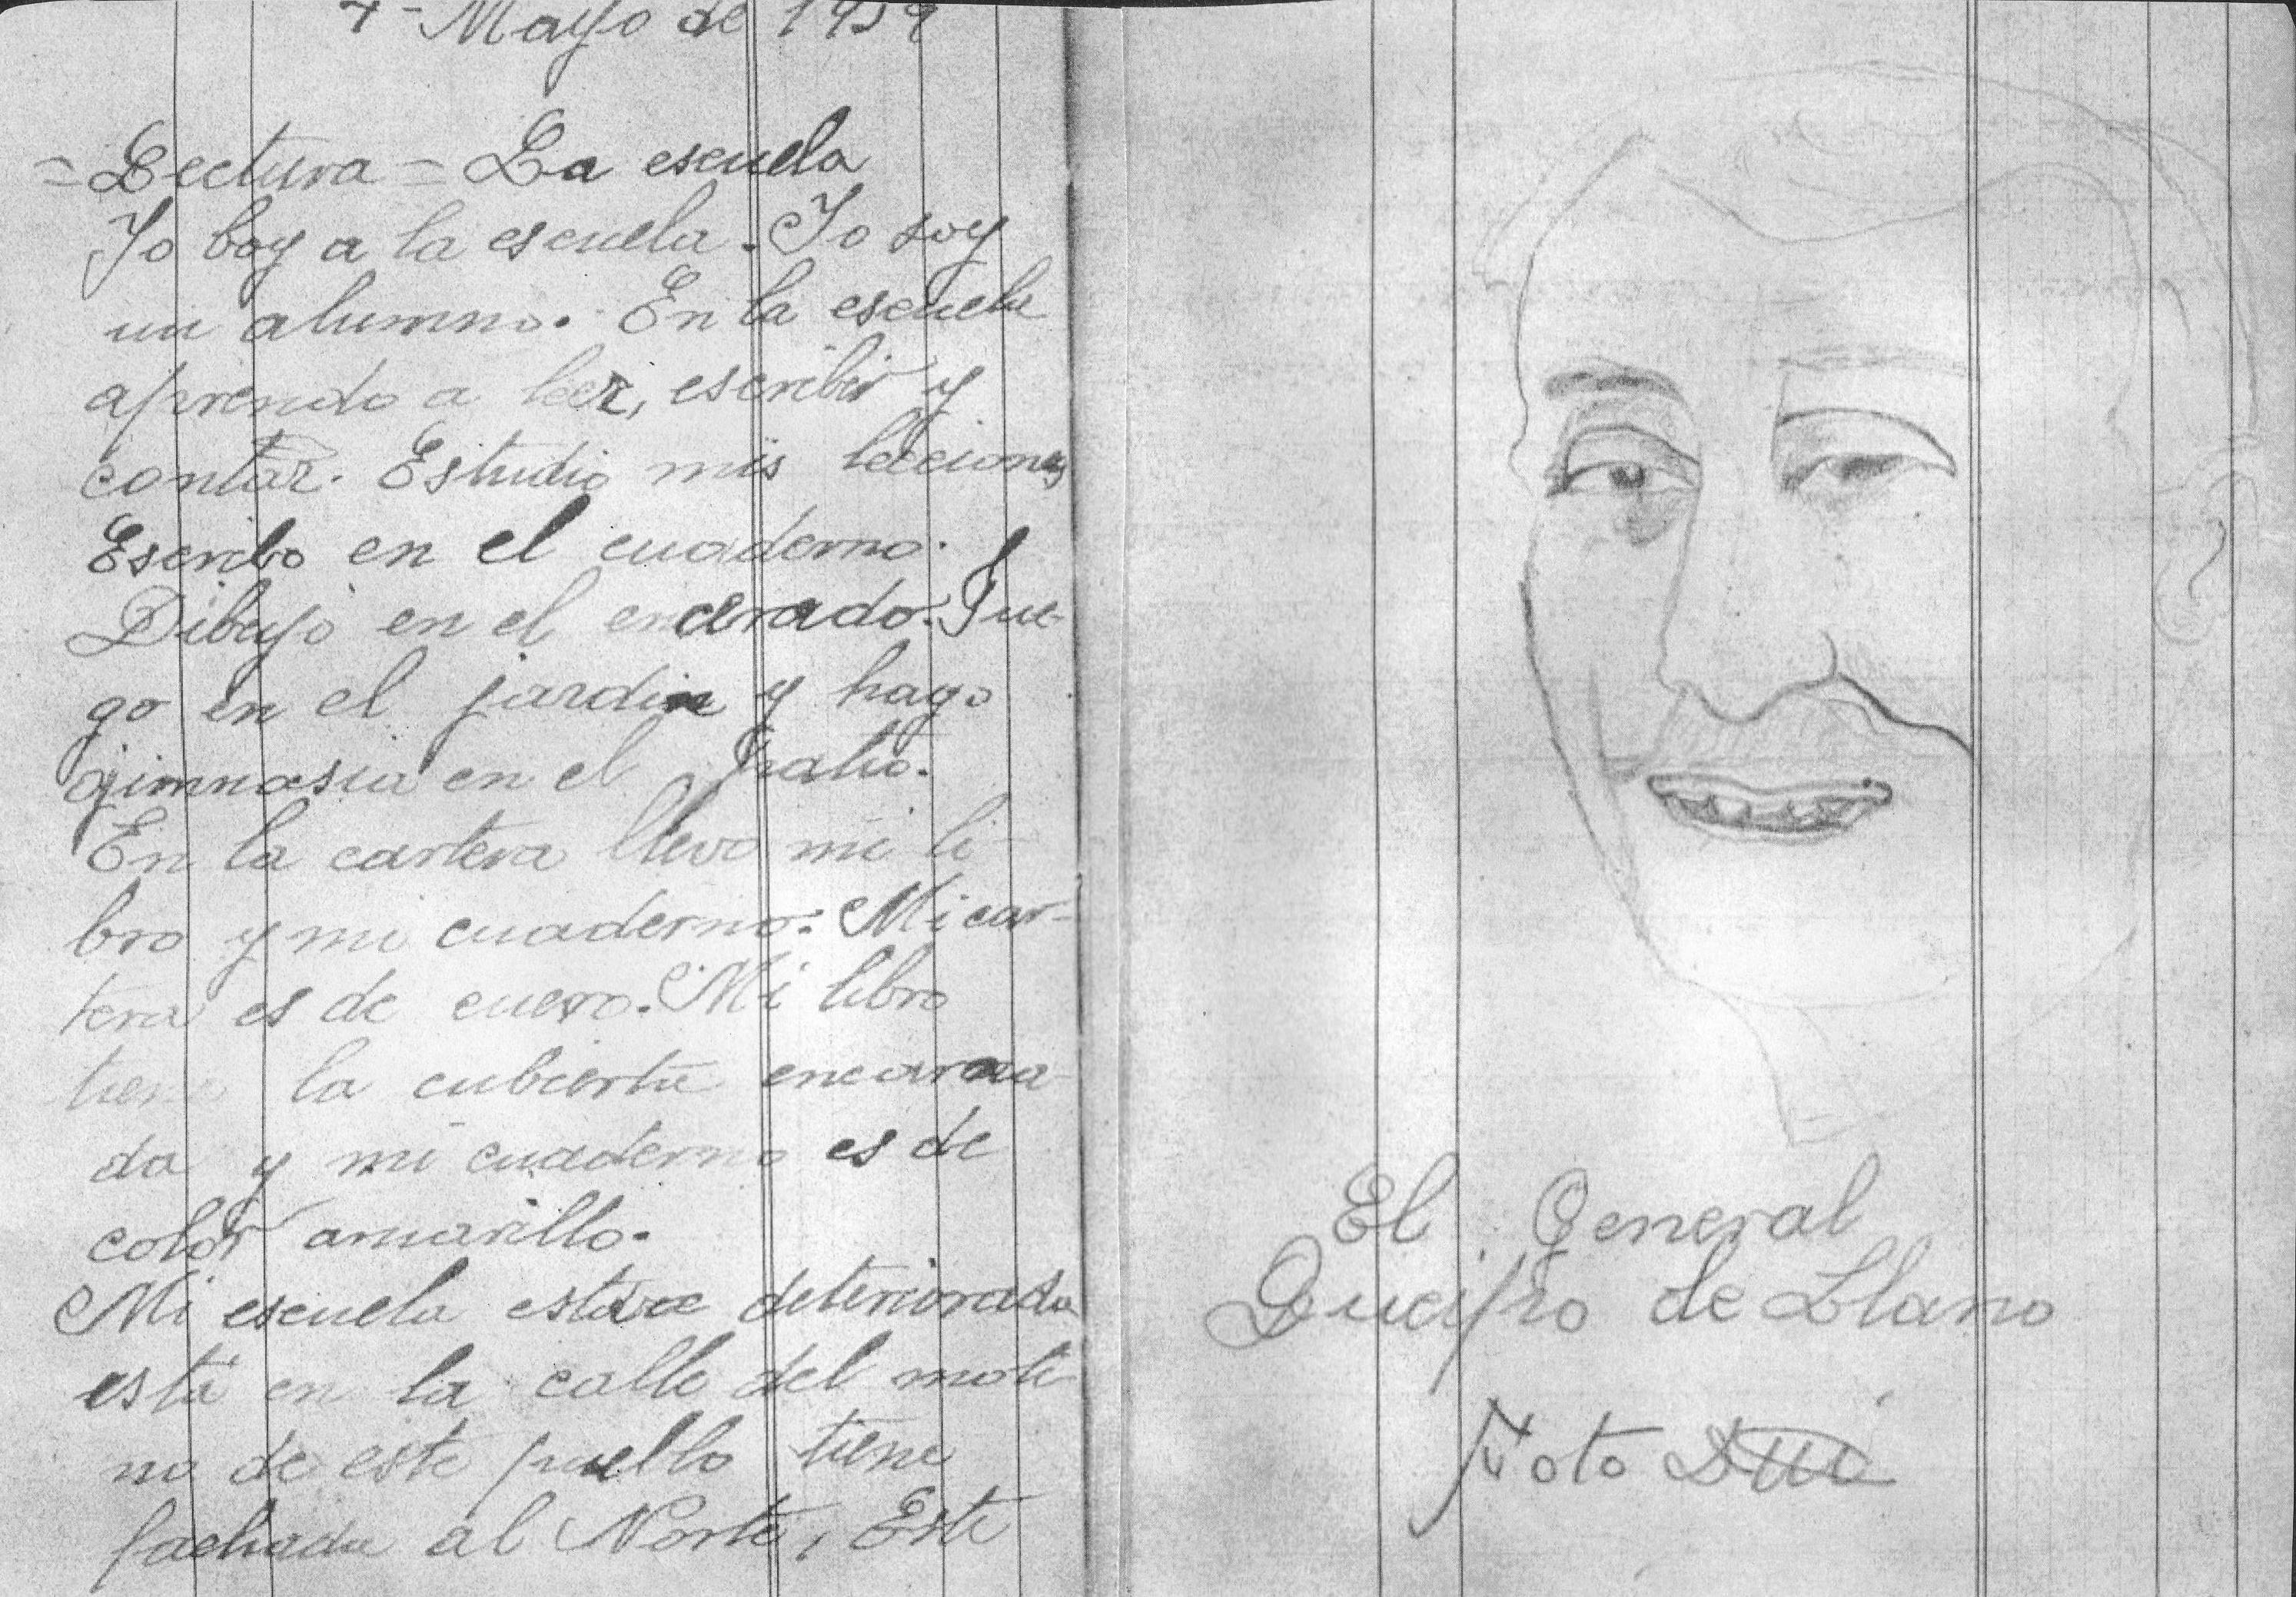 Mayo de 1939
= Lectura = La escuela
Yo boy a la escuela. Yo soy
un alumno. En la escuela
aprendo a leer, escribir y
contar. Estudio mis lecciones
Escribo en el cuaderno.
Dibujo en el encerado. Jue-
go en el jardin y hago
gimnasia en el patio.
En la cartera llevo mi li-
bro y mi cuaderno. Mi car-
tera es de cuero. Mi libro
tiene la cubierta encarna-
da y mi cuaderno es de
color amarillo.
Mi escuela deteriorada
está en la calle del moli-
no de este pueblo tiene
fachada al Norte, Este
El General
Queipo de Llano
Foto